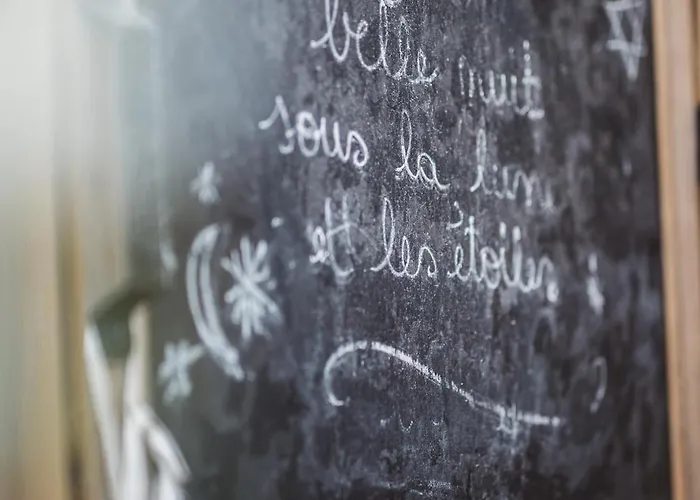 belle nuit
sous la lune
et les étoiles !